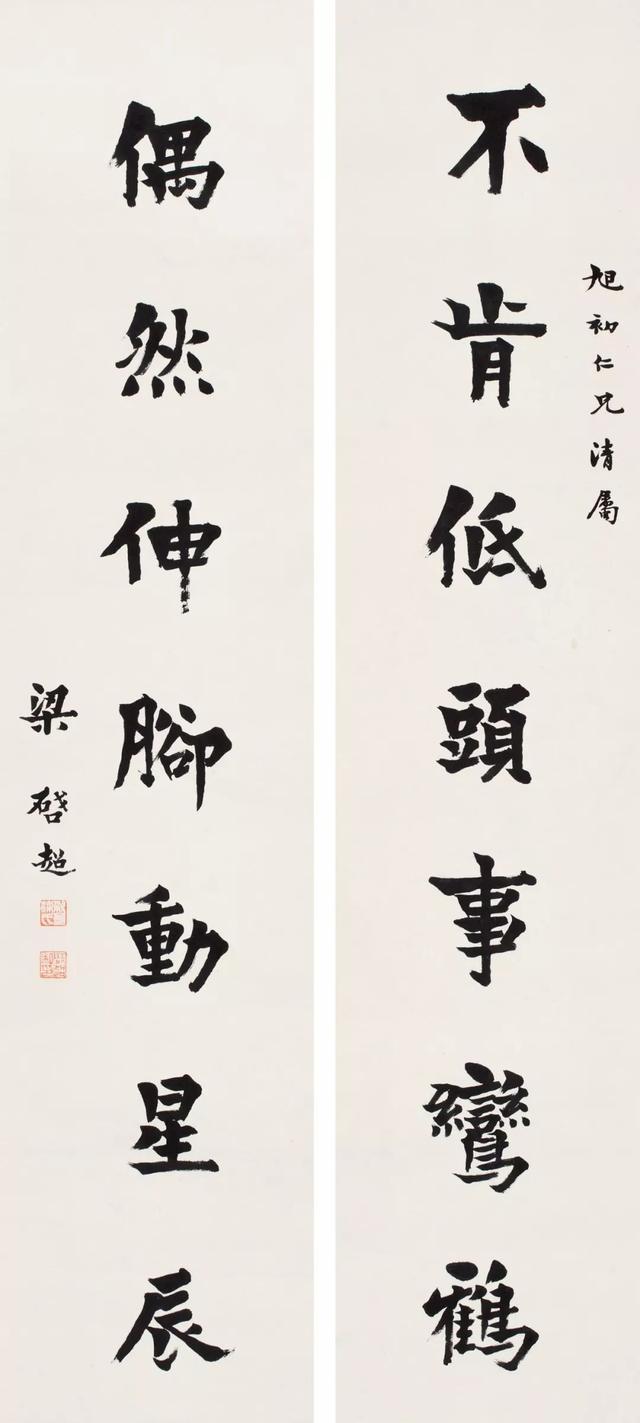 旭初仁兄清屬
不肯低頭事鸞鶴
偶然伸腳動星辰
梁啓超